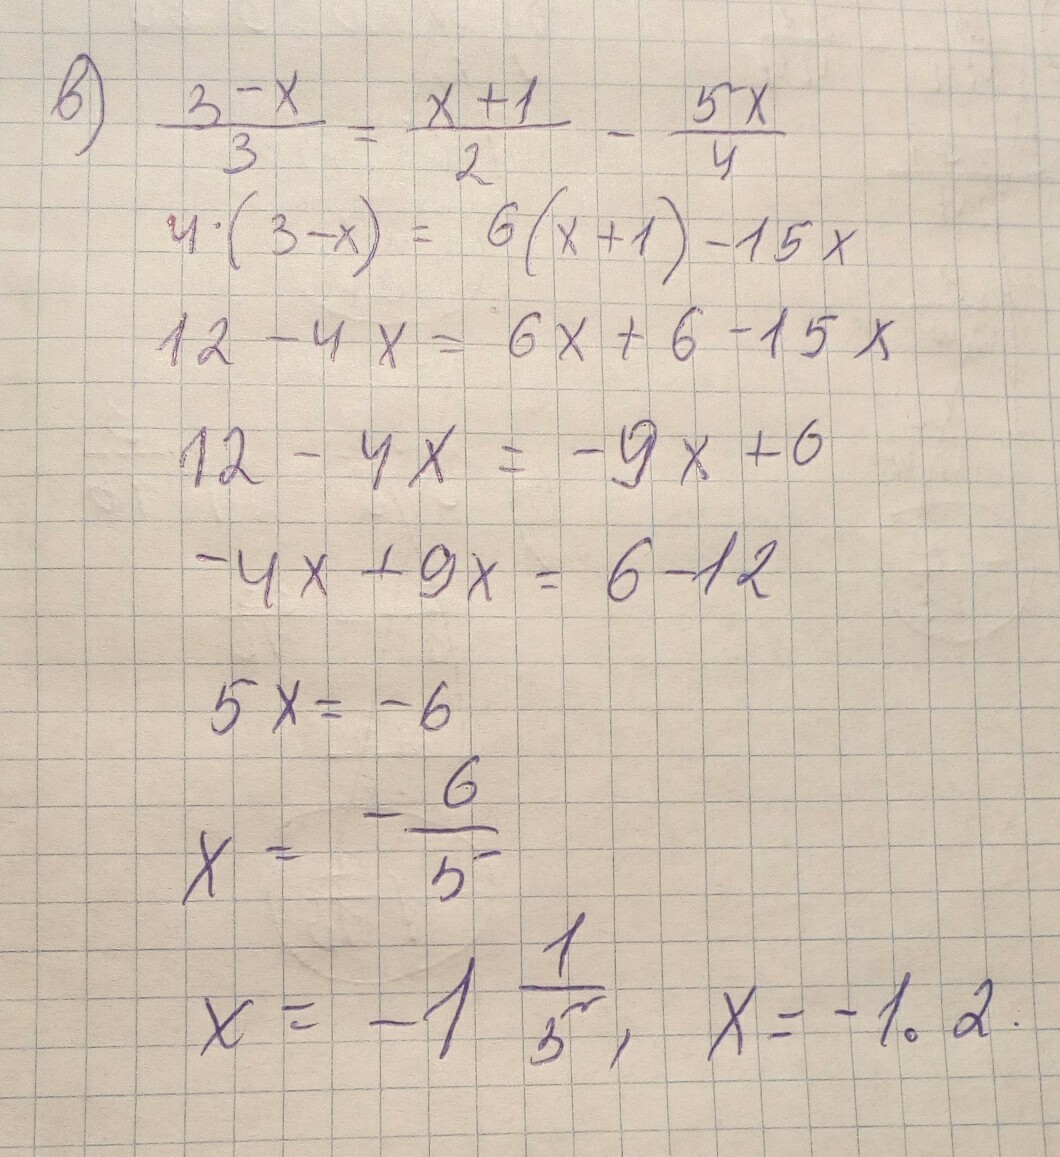 в) (3-x)/3 = (x+1)/2 - 5x/4
4·(3-x) = 6(x+1)-15x
12-4x = 6x+6-15x
12-4x = -9x+6
-4x+9x = 6-12
5x = -6
x = -6/5
x = -1 1/5, x = -1.2.